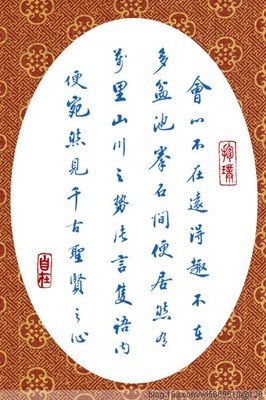 會心不在遠得趣不在
多盆池拳石間便居然有
萬里山川之勢片言隻語內
便宛然見千古聖賢之心
自在